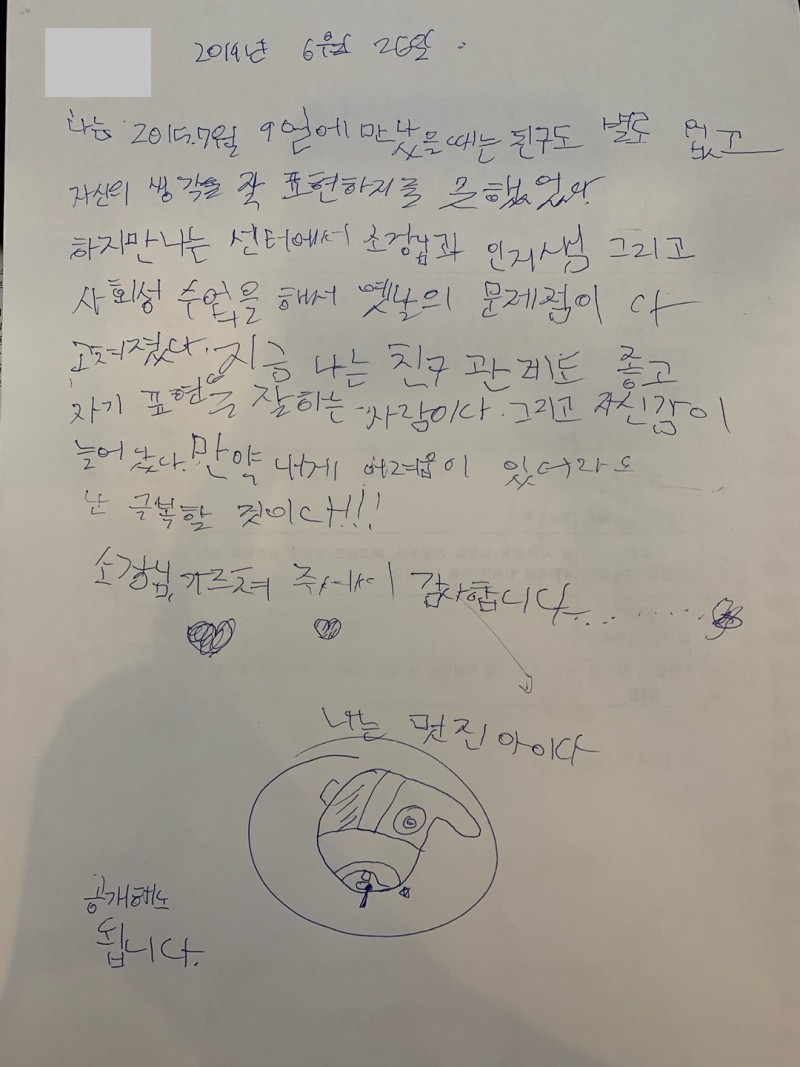 2019년 6월 26일.
나는 2015.7월 9일에 만났을때는 친구도 별로 없고
자신의 생각을 잘 표현하지를 못했었다.
하지만 나는 센터에서 소장님과 인지샘님 그리고
사회성 수업을 해서 옛날의 문제점이 다
고쳐졌다. 지금 나는 친구 관계도 좋고
자기 표현을 잘하는 사람이다. 그리고 자신감이
늘어 났다. 만약 내게 어려움이 있더라도
난 극복할 것이다!!!
소장님, 가르쳐 주셔서 감사합니다......
나는 멋진 아이다
공개해도
됩니다.